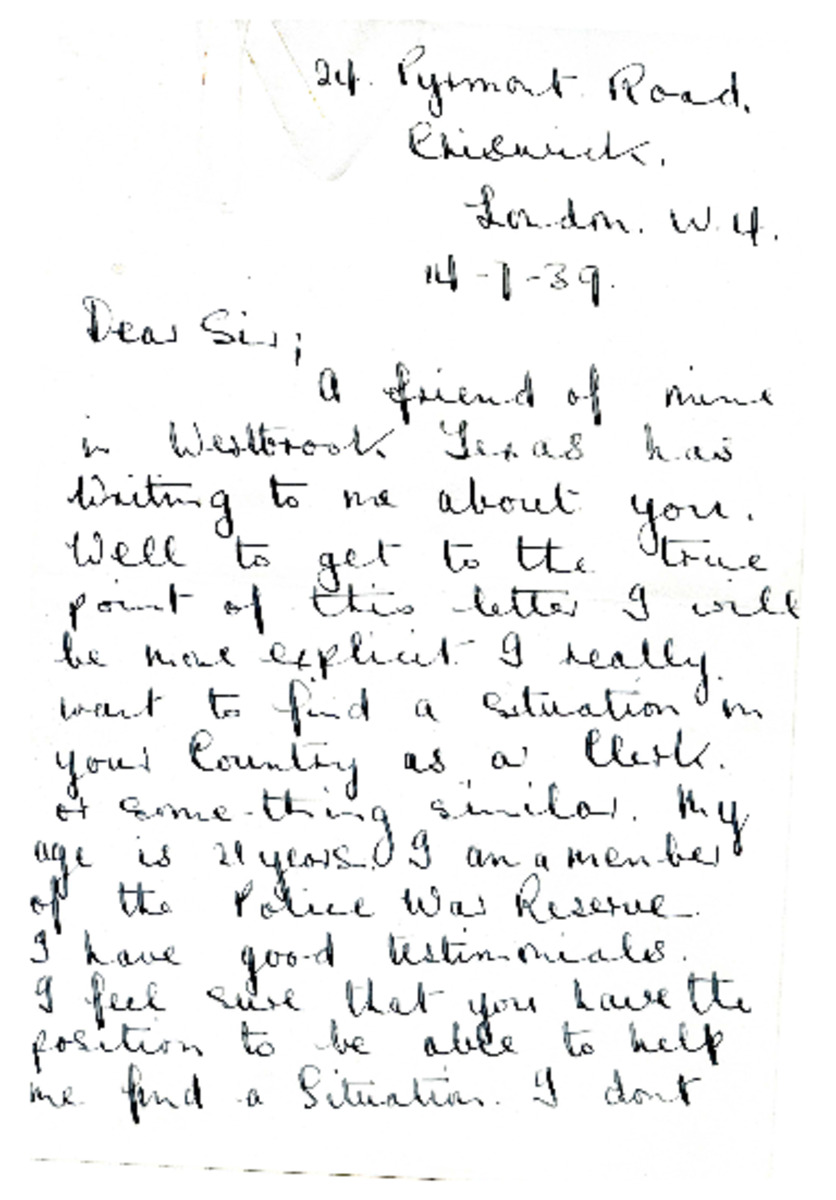 24. Pyrmont Road.
Chiswick.
London. W.4.
14-7-39.
Dear Sir;
A friend of mine
in Westbrook Texas has
writing to me about you.
Well to get to the true
point of this letter I will
be more explicit I really
want to find a situation in
your Country as a Clerk.
or some-thing similar. My
age is years. I am a member
of the Police War Reserve.
I have good testimonials.
I feel sure that you have the
position to be able to help
me find a Situation. I dont